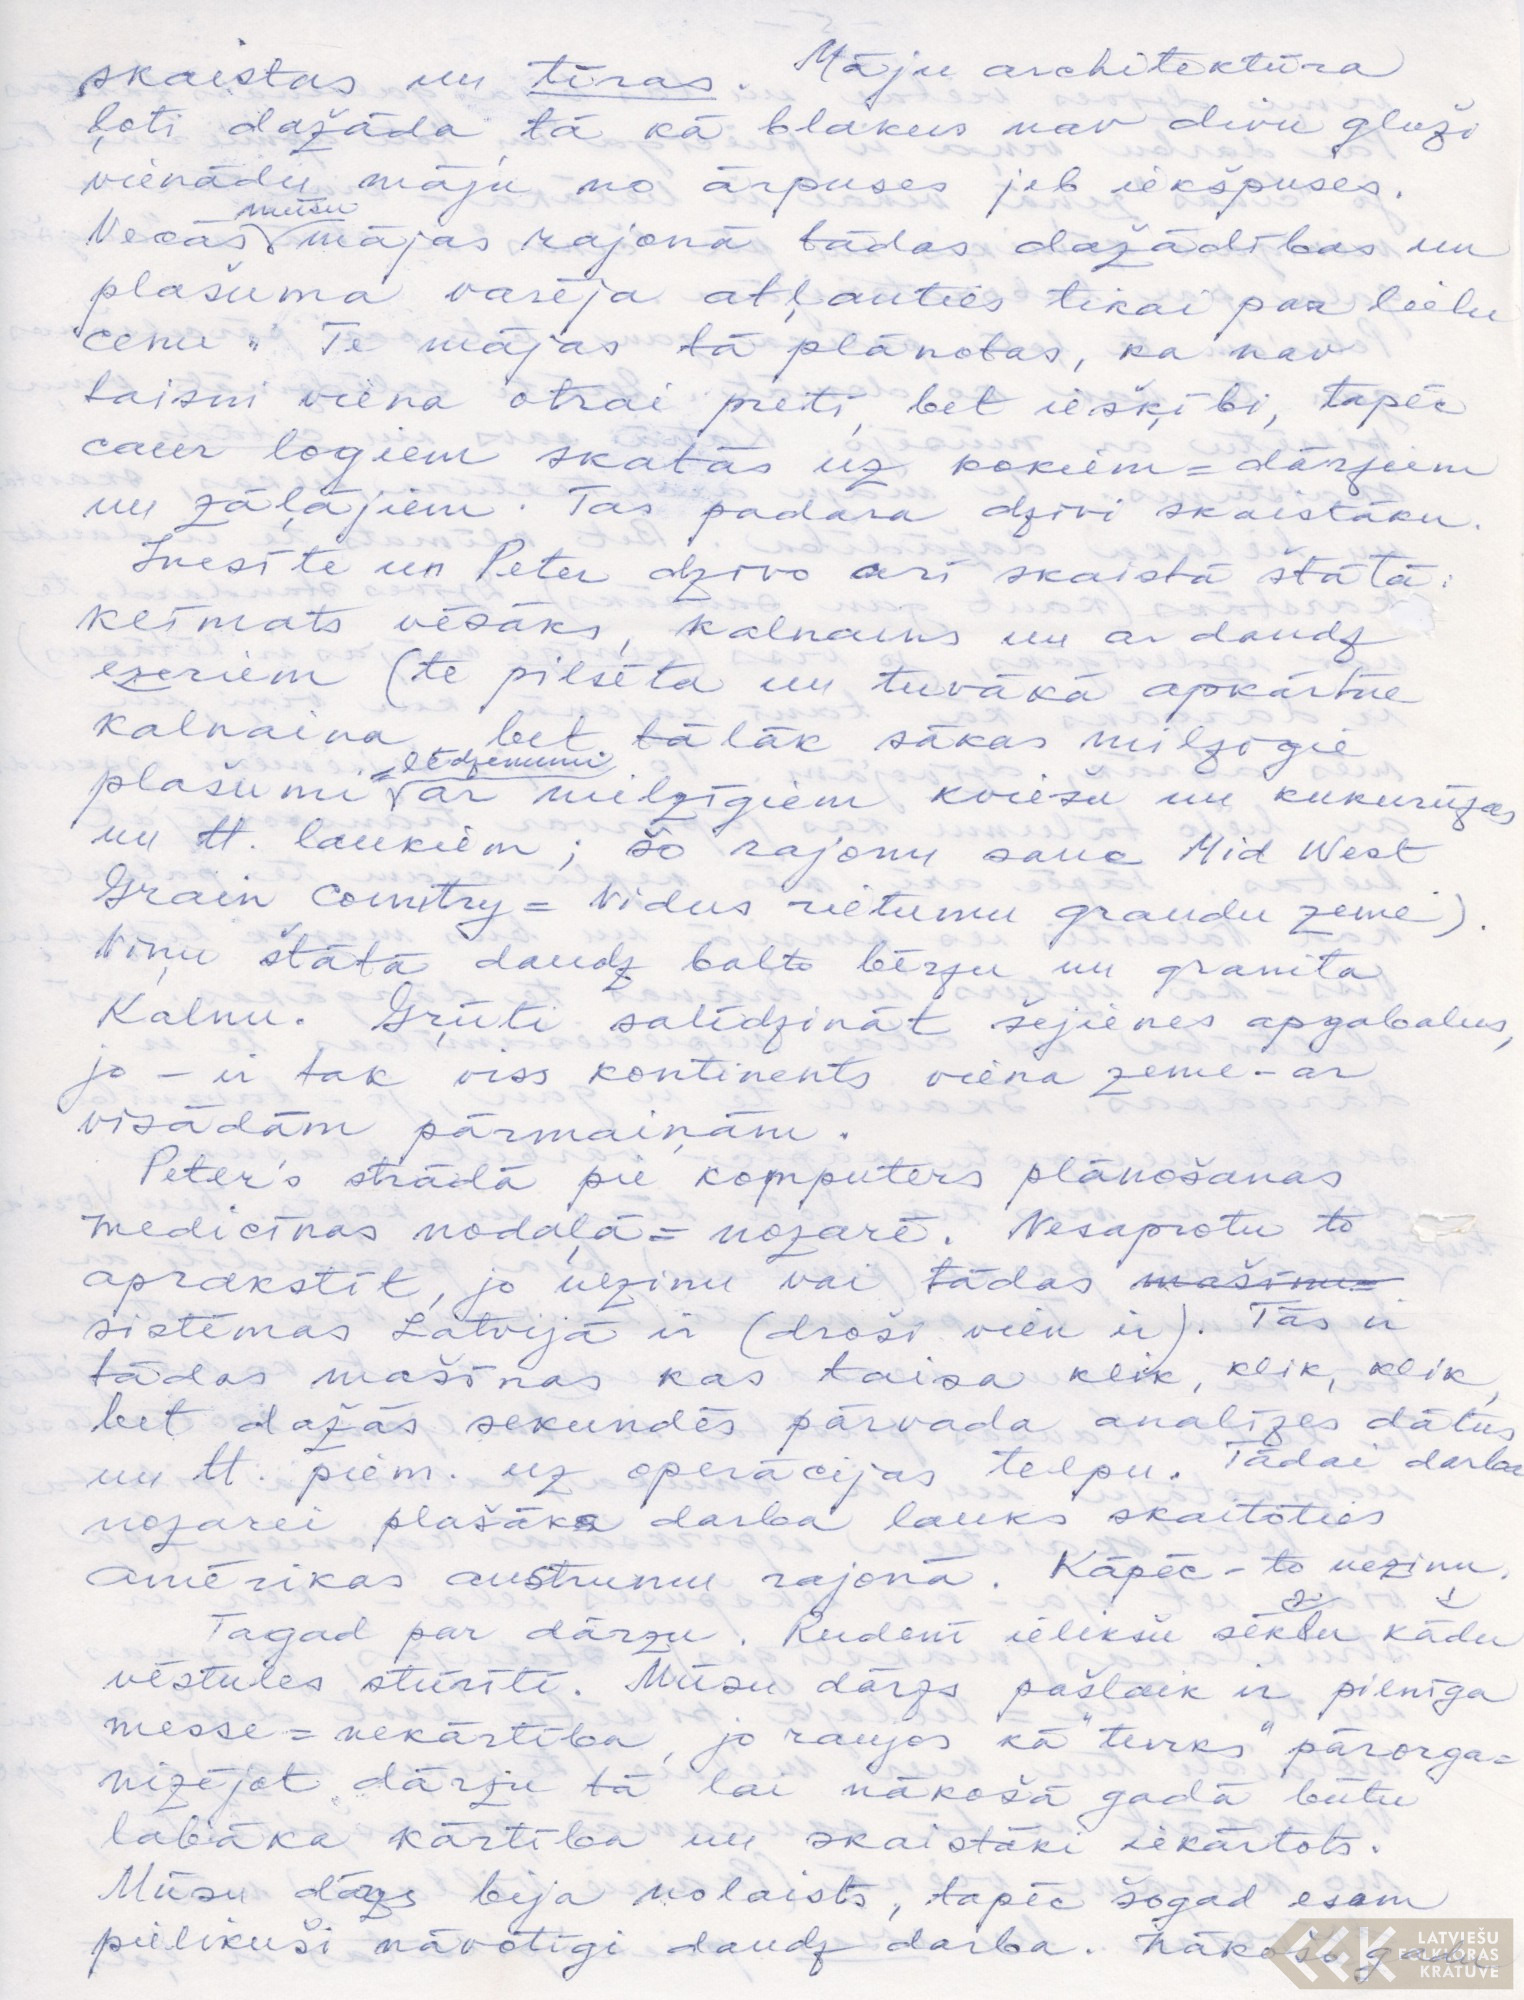 skaistas un tīras. Māju architektūra
ļoti dažāda tā kā blakus nav divu gluži
vienādu māju no ārpuses jeb iekšpuses.
Vecās mūsu mājas rajonā tādas dažādības un
plašuma varēja atļauties tikai par lielu
cenu. Te mājas tā plānotas, ka nav
taisni viena otrai pretī, bet iešķībi, tapēc
caur logiem skatās uz kokiem = dārziem
un zālājiem. Tas padara dzīvi skaistāku.
Inesīte un Peter dzīvo arī skaistā štātā:
klīmats vēsāks, kalnains un ar daudz
ezeriem (te pilsēta un tuvākā apkārtne
kalnaina, bet tālāk sākas milzīgie
plašumi = lēdzenumi ar milzīgiem kviešu un kukurūzas
un tt. laukiem; šo rajonu sauc Mid West
Grain Country = Vidus rietumu graudu zeme).
Viņu štātā daudz balto bērzu un granīta
Kalnu. Gŗūti salīdzināt šejienes apgabalus,
jo – ir tak viss kontinents viena zeme – ar
visādām pārmaiņām.
Peter's strādā pie komputers plānošanas
medicīnas nodaļā = nozarē. Nesaprotu to
aprakstīt, jo nezinu vai tādas mašīnu=
sistēmas Latvijā ir (droši vien ir). Tās ir
tādas mašīnas kas taisa klik, klik, klik,
bet dažās sekundēs pārvada analīzes dātus
un tt. piem. uz operācijas telpu. Tādai darba
nozarei plašāks darba lauks skaitoties
amērikas austrumu rajonā. Kāpēc – to nezinu.
Tagad par dārzu. Rudenī ielikšu sēklu kādu
vēstules stūrītī. Mūsu dārzs pašlaik ir pilnīga
messe = nekārtība, jo raujos kā "turks" pārorga=
nizējot dārzu tā lai nākošā gadā būtu
labāka kārtība un skaistāki iekārtots.
Mūsu dārzs bija nolaists, tapēc šogad esam
pielikuši nāvōtīgi daudz darba. Nākošo gadu
LATVIEŠU
FOLKLORAS
KRĀTUVE